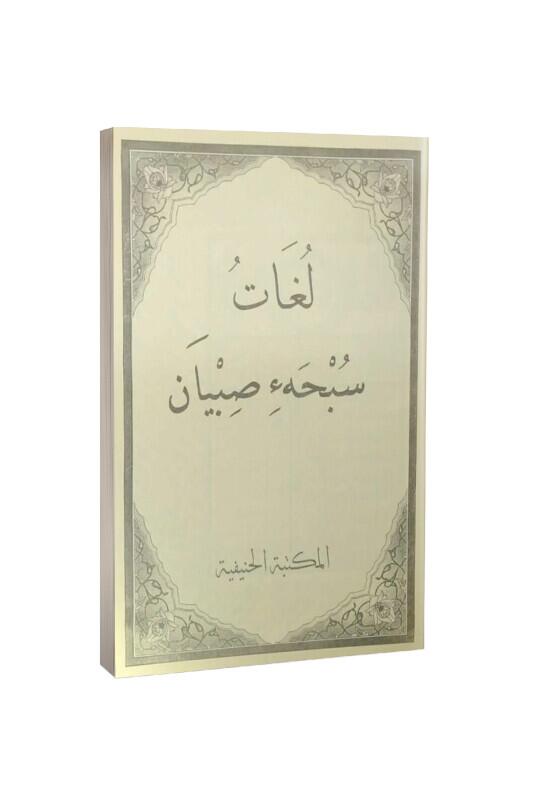 لُغَاتُ
سُبْحَهءِ صِبْيَان
المكتبة الحنيفية